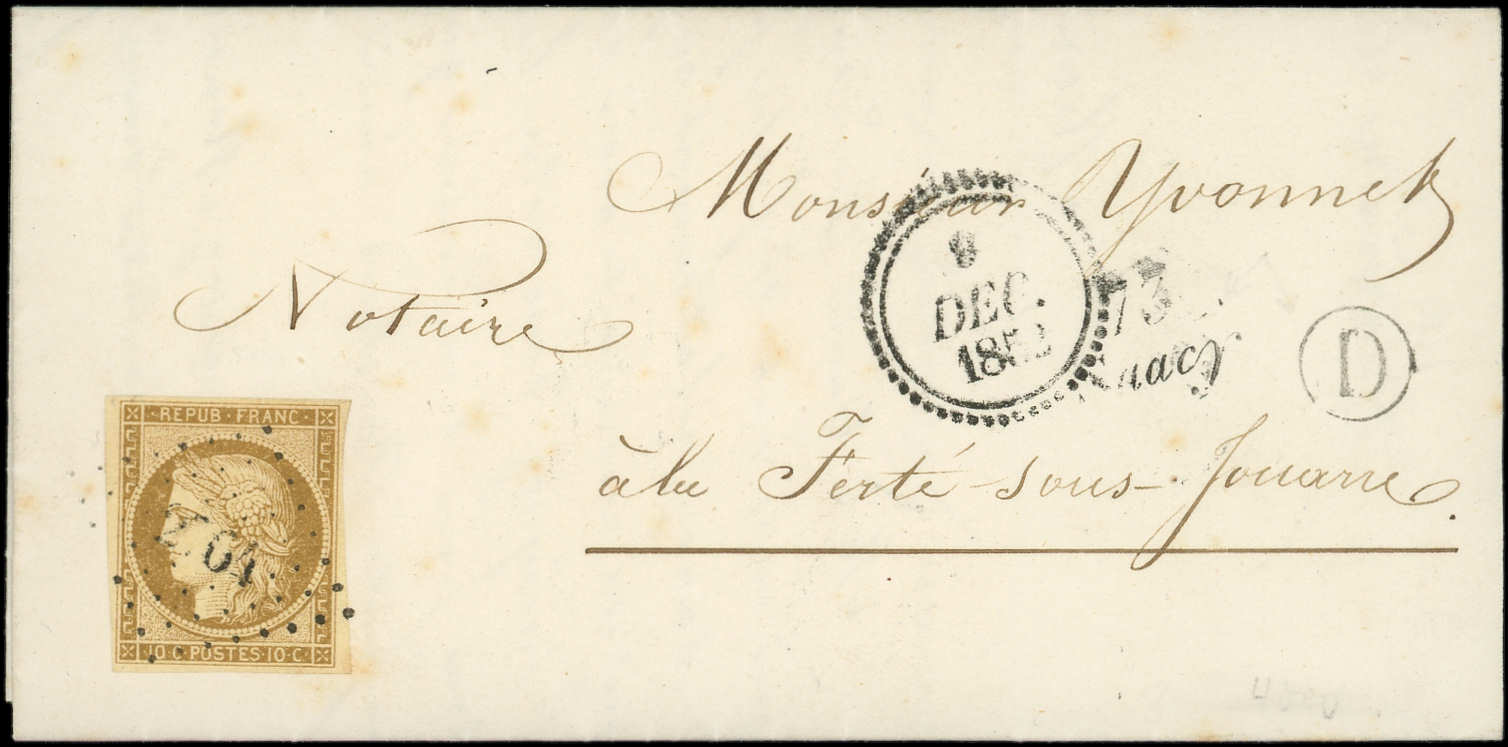 Monsieur Yvonnet
Notaire
8
DEC.
1852
73
D
à la Ferté-sous-Jouarre.
REPUB·FRANC·
10·C·POSTES·10·C·